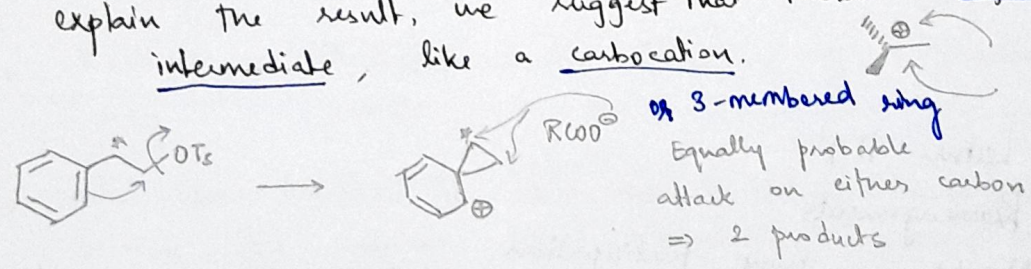 explain the result, we suggest
intermediate, like a carbocation.
⊕
or 3-membered ring
* OTs
* RCOO⊖
⊕
Equally probable
attack on either carbon
⇒ 2 products